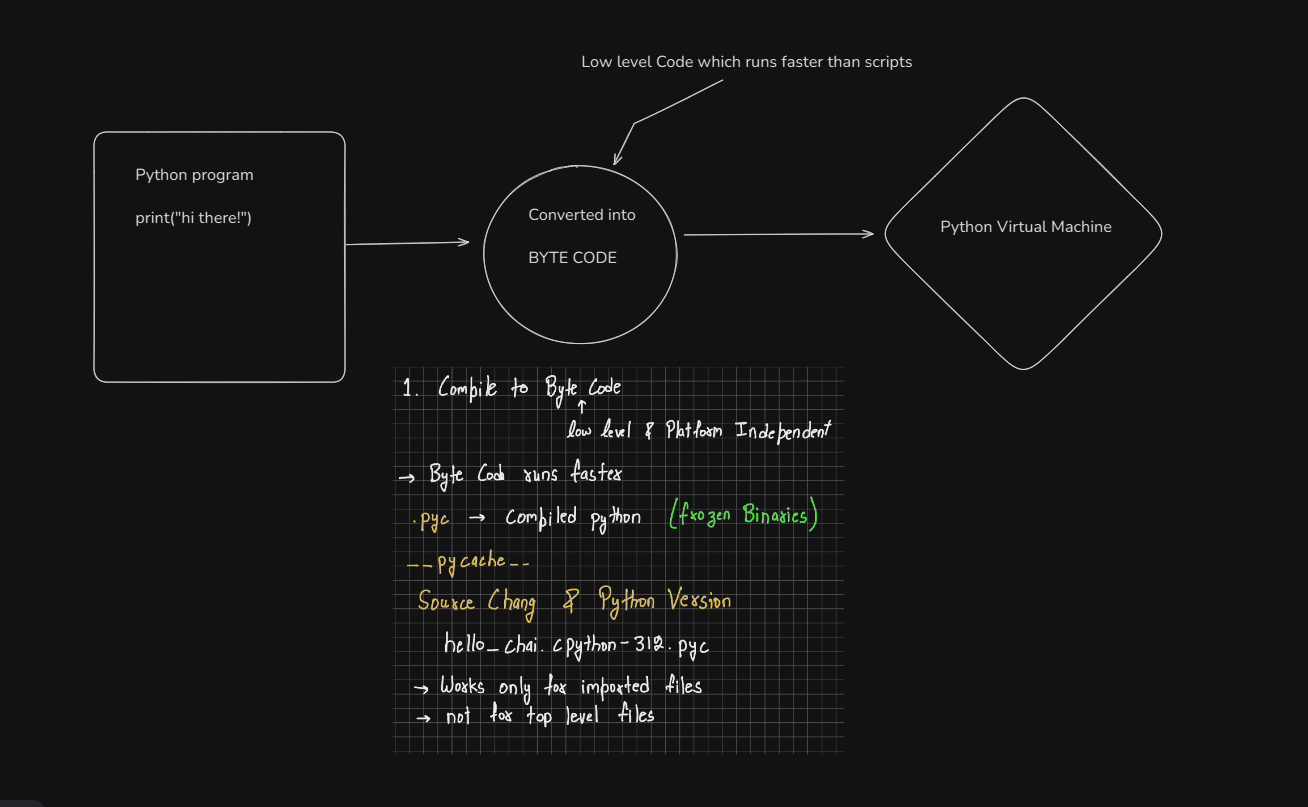 Low level Code which runs faster than scripts
Python program
print("hi there!")
Converted into
BYTE CODE
Python Virtual Machine
1. Compile to Byte Code
low level & Platform Independent
→ Byte Code runs faster
.pyc → Compiled python (frozen Binaries)
__pycache__
Source Chang & Python Version
hello_chai.cpython-312.pyc
→ Works only for imported files
→ not for top level files